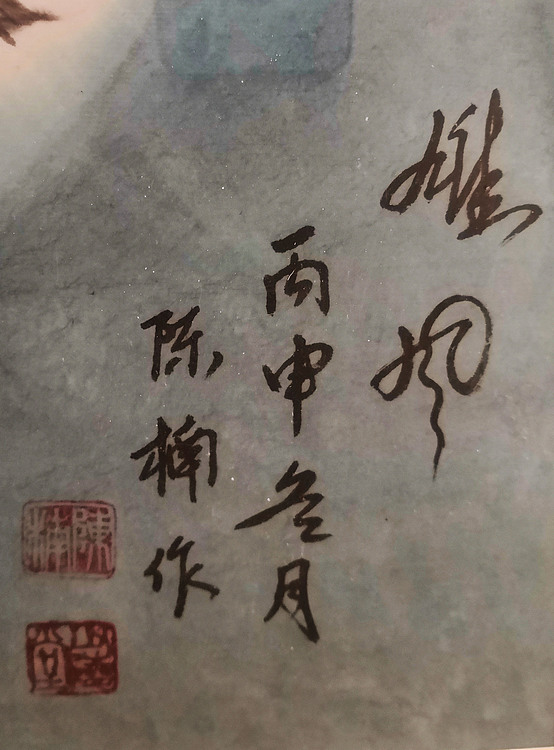 雄风
丙申冬月
陈楠作
陳楠